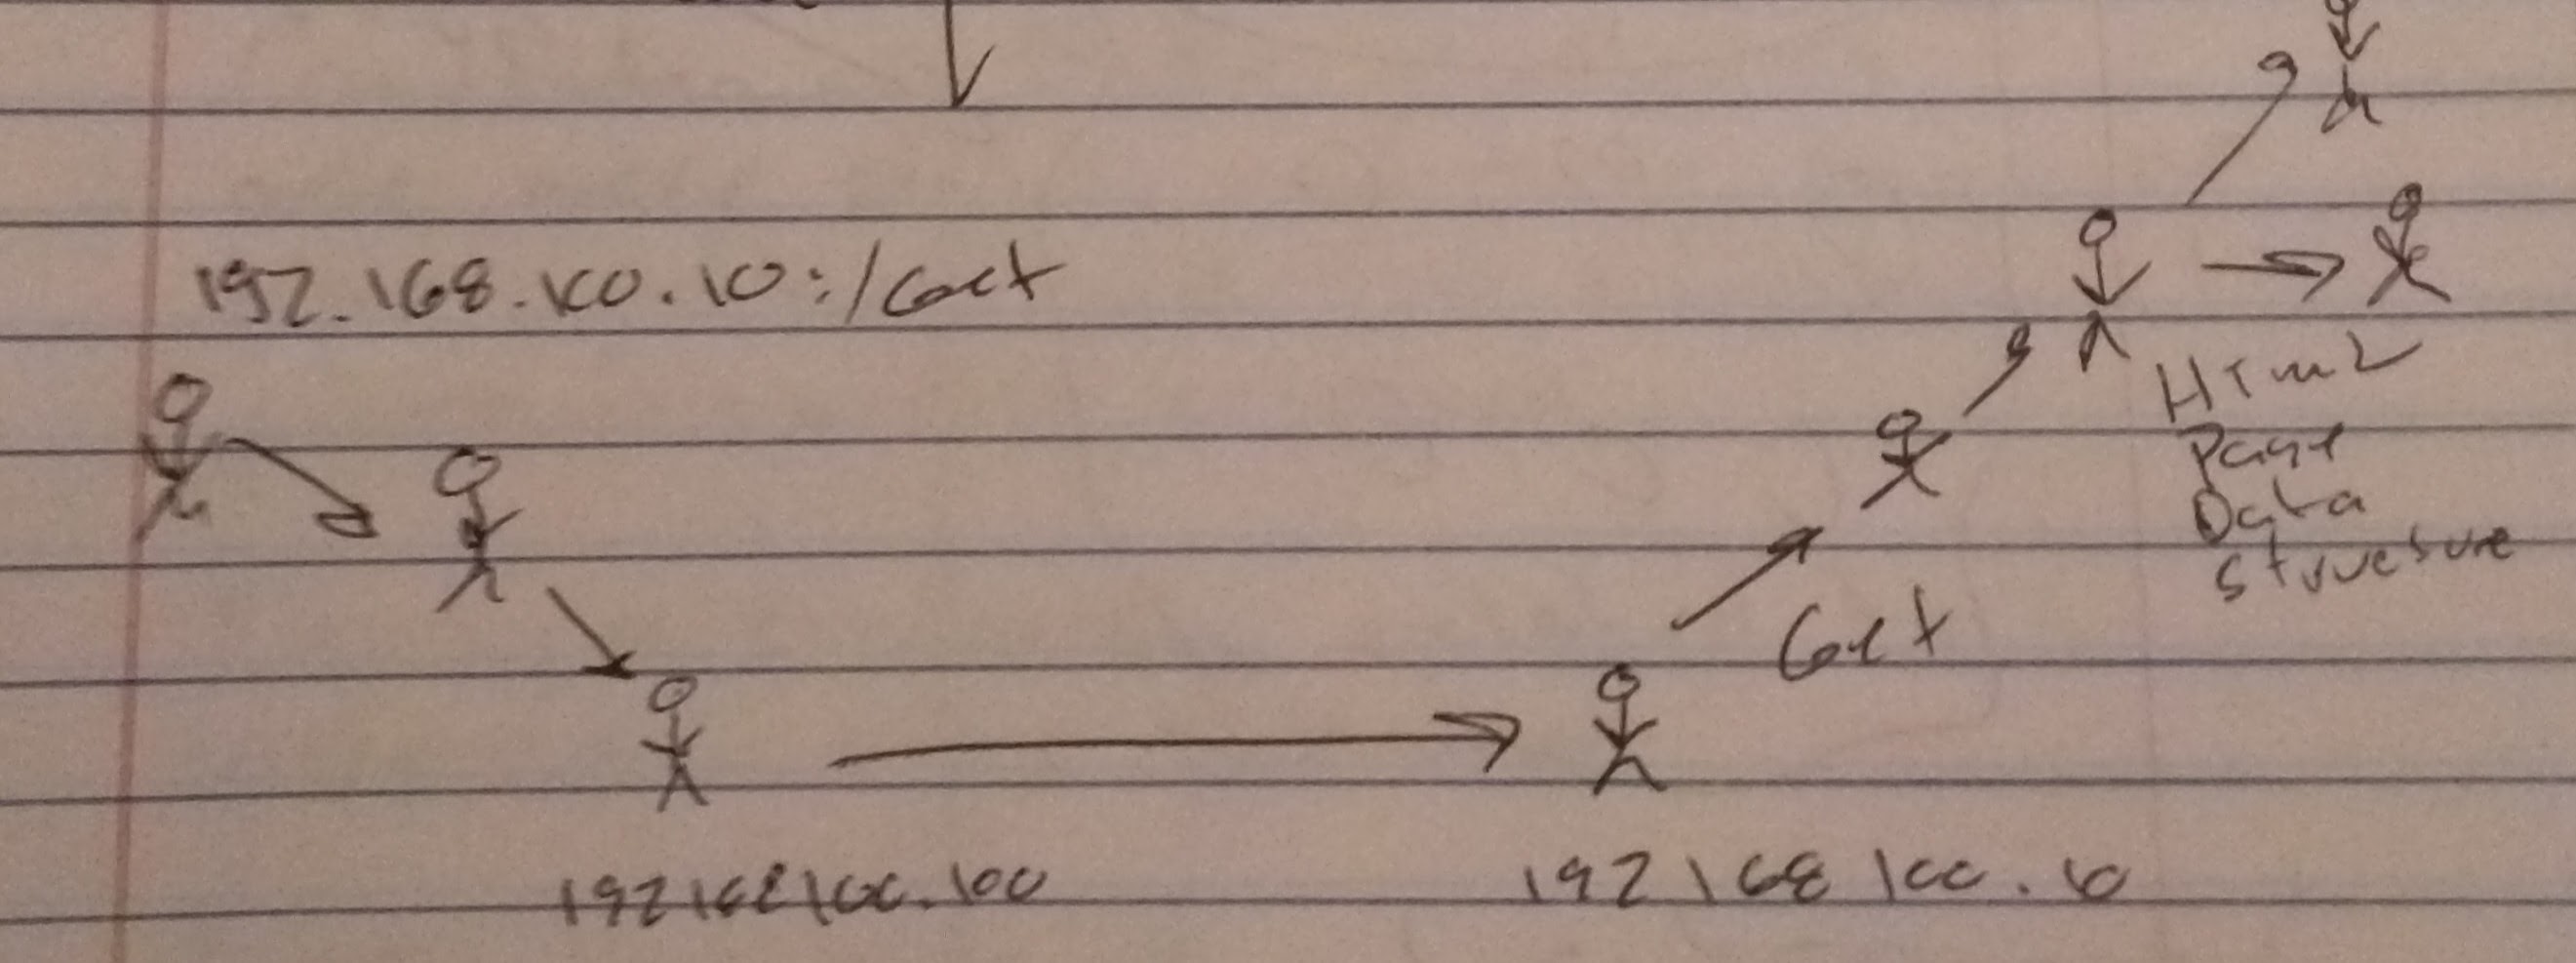 192.168.100.10:/Get
HTML
Page
Data
structure
Get
192168100.100
192 168 100.10